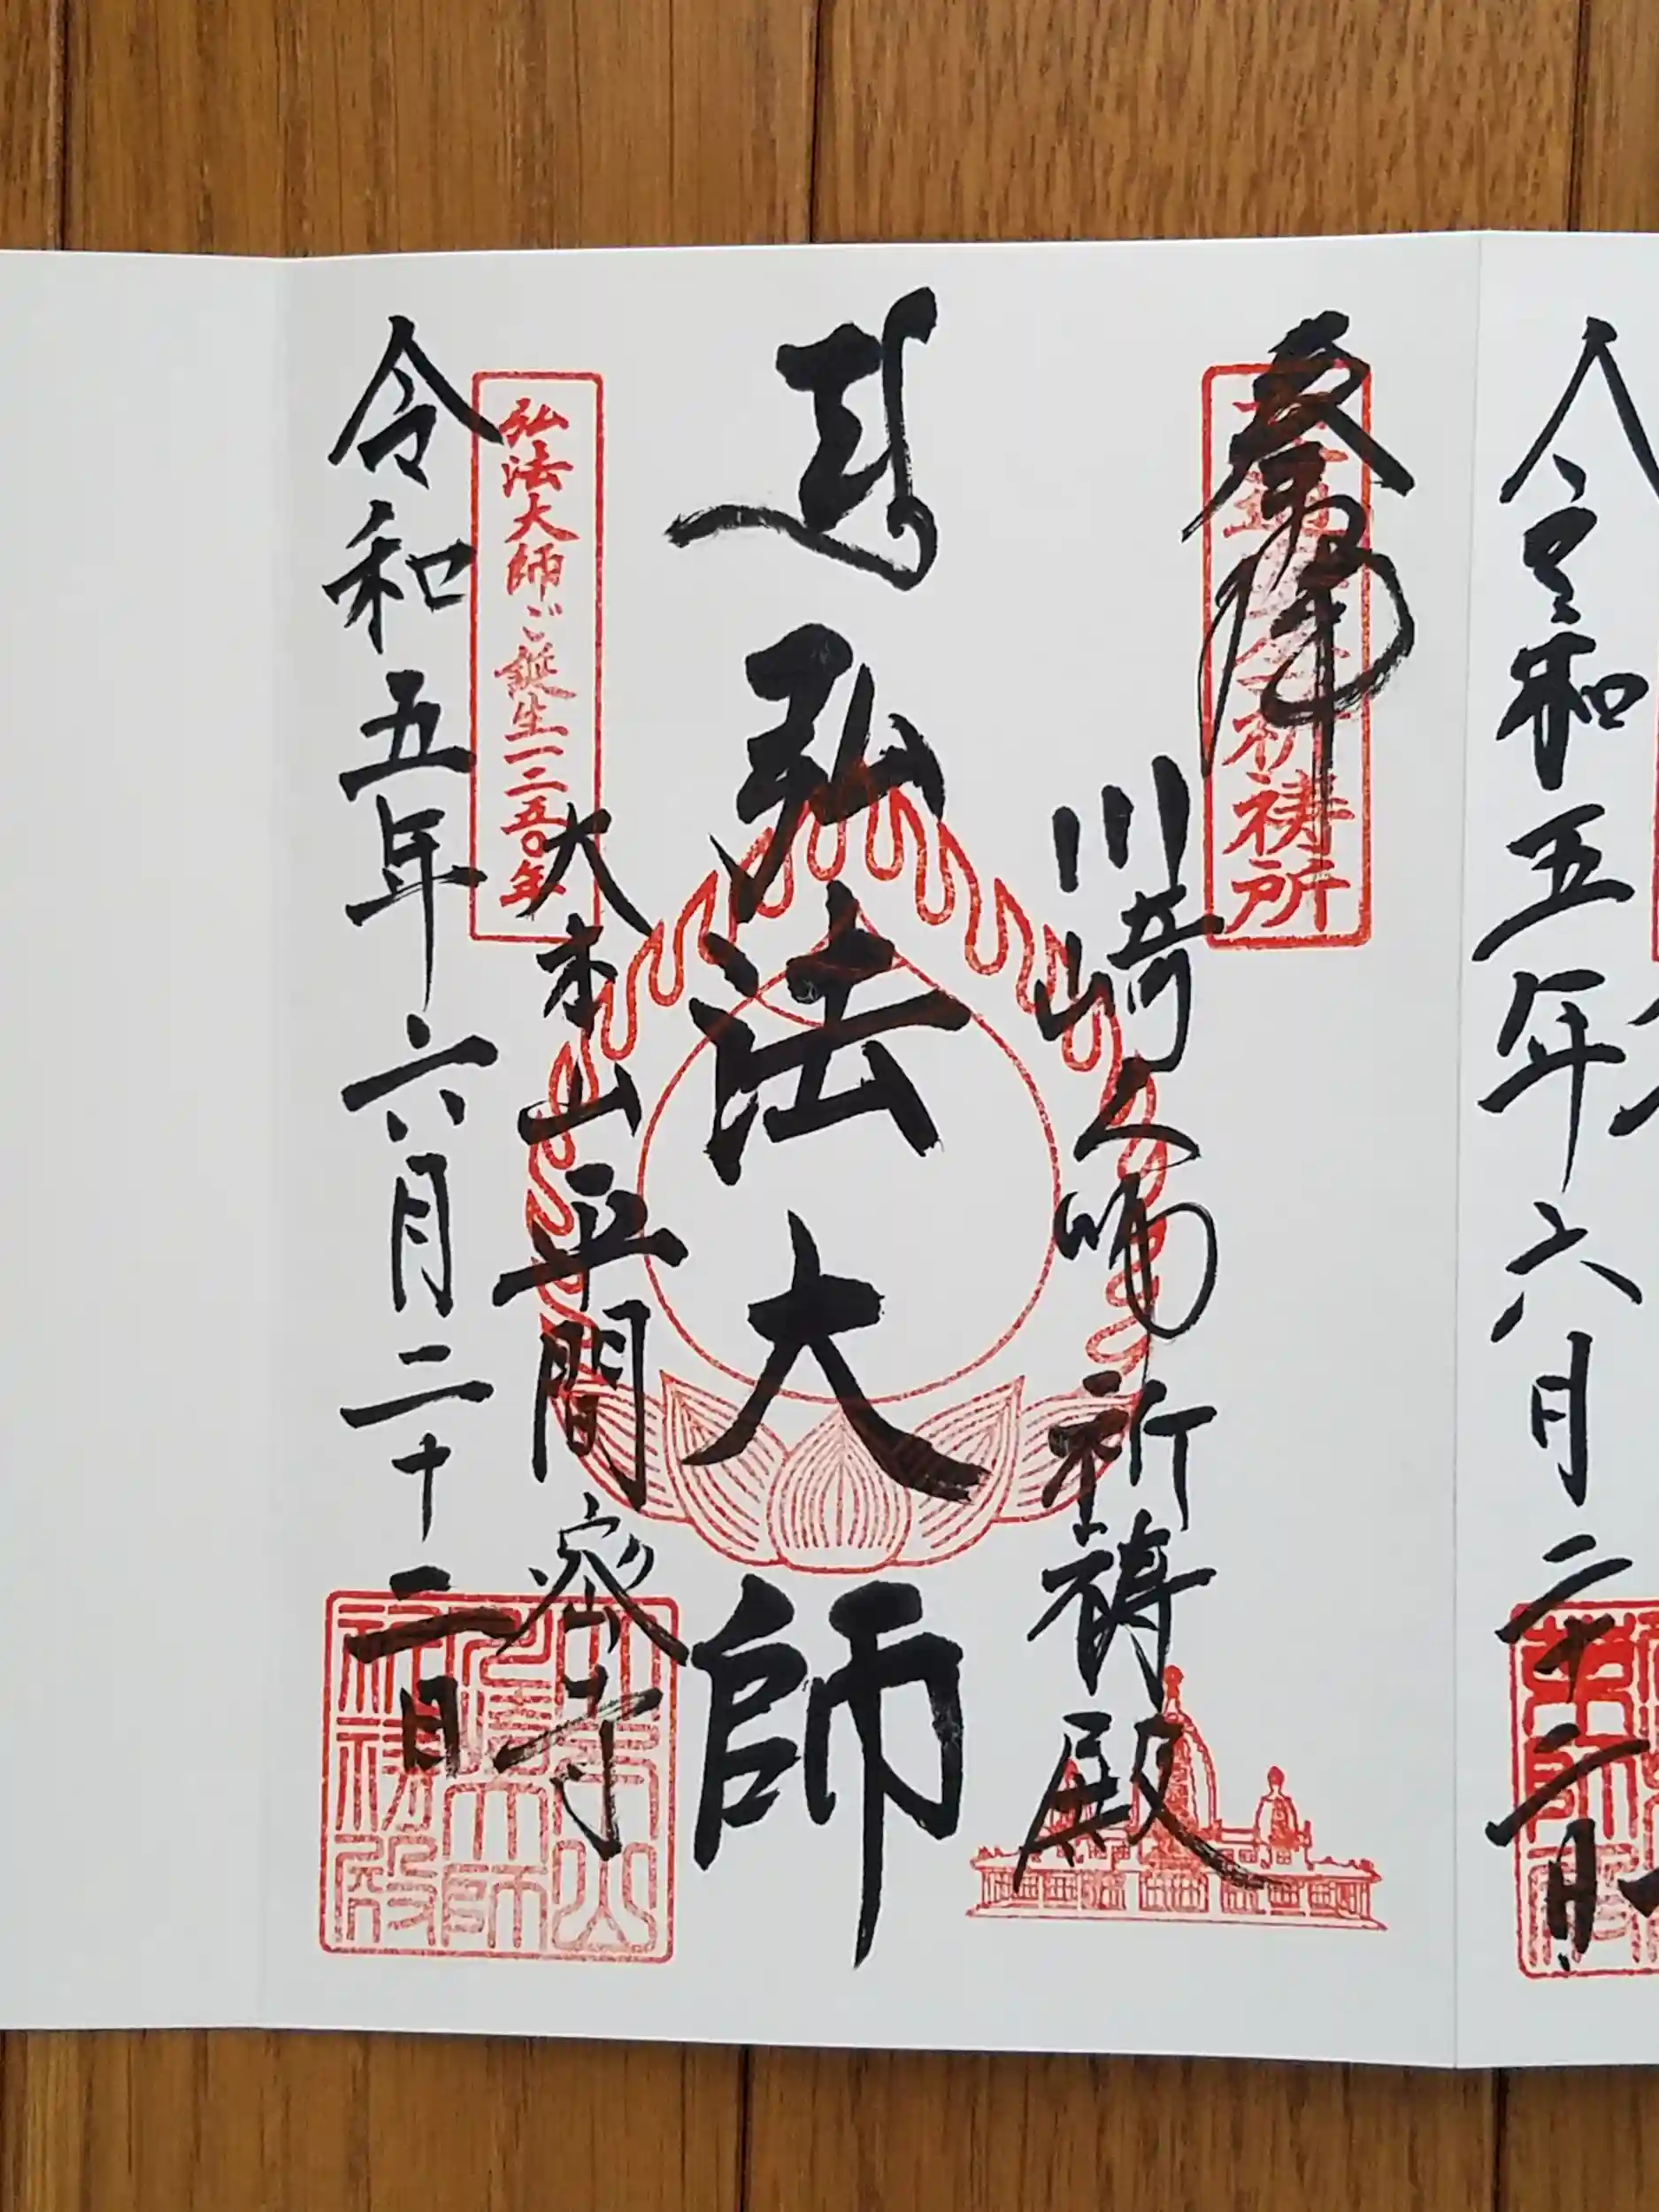 令和五年六月二十二日
奉拝
祈祷所
川崎大師 祈祷殿
弘法大師
弘法大師ご誕生一二五〇年
大本山平間密寺
令和五年六月二十二日
祈祷殿